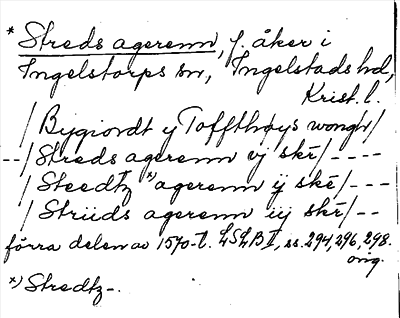 * Streds agerenn, f. åker i
Ingelstorps sn, Ingelstads hd,
Krist. l.
/ Bygiordt y Toffthøys wongh/
--/ Streds agerenn vj skē/----
/ Steedtz x) agerenn ij skē/---
/ Striids agerenn iij skē/--
förra delen av 1570-t. LSLB II, ss. 294, 296, 298.
orig.
x) Stredtz-.